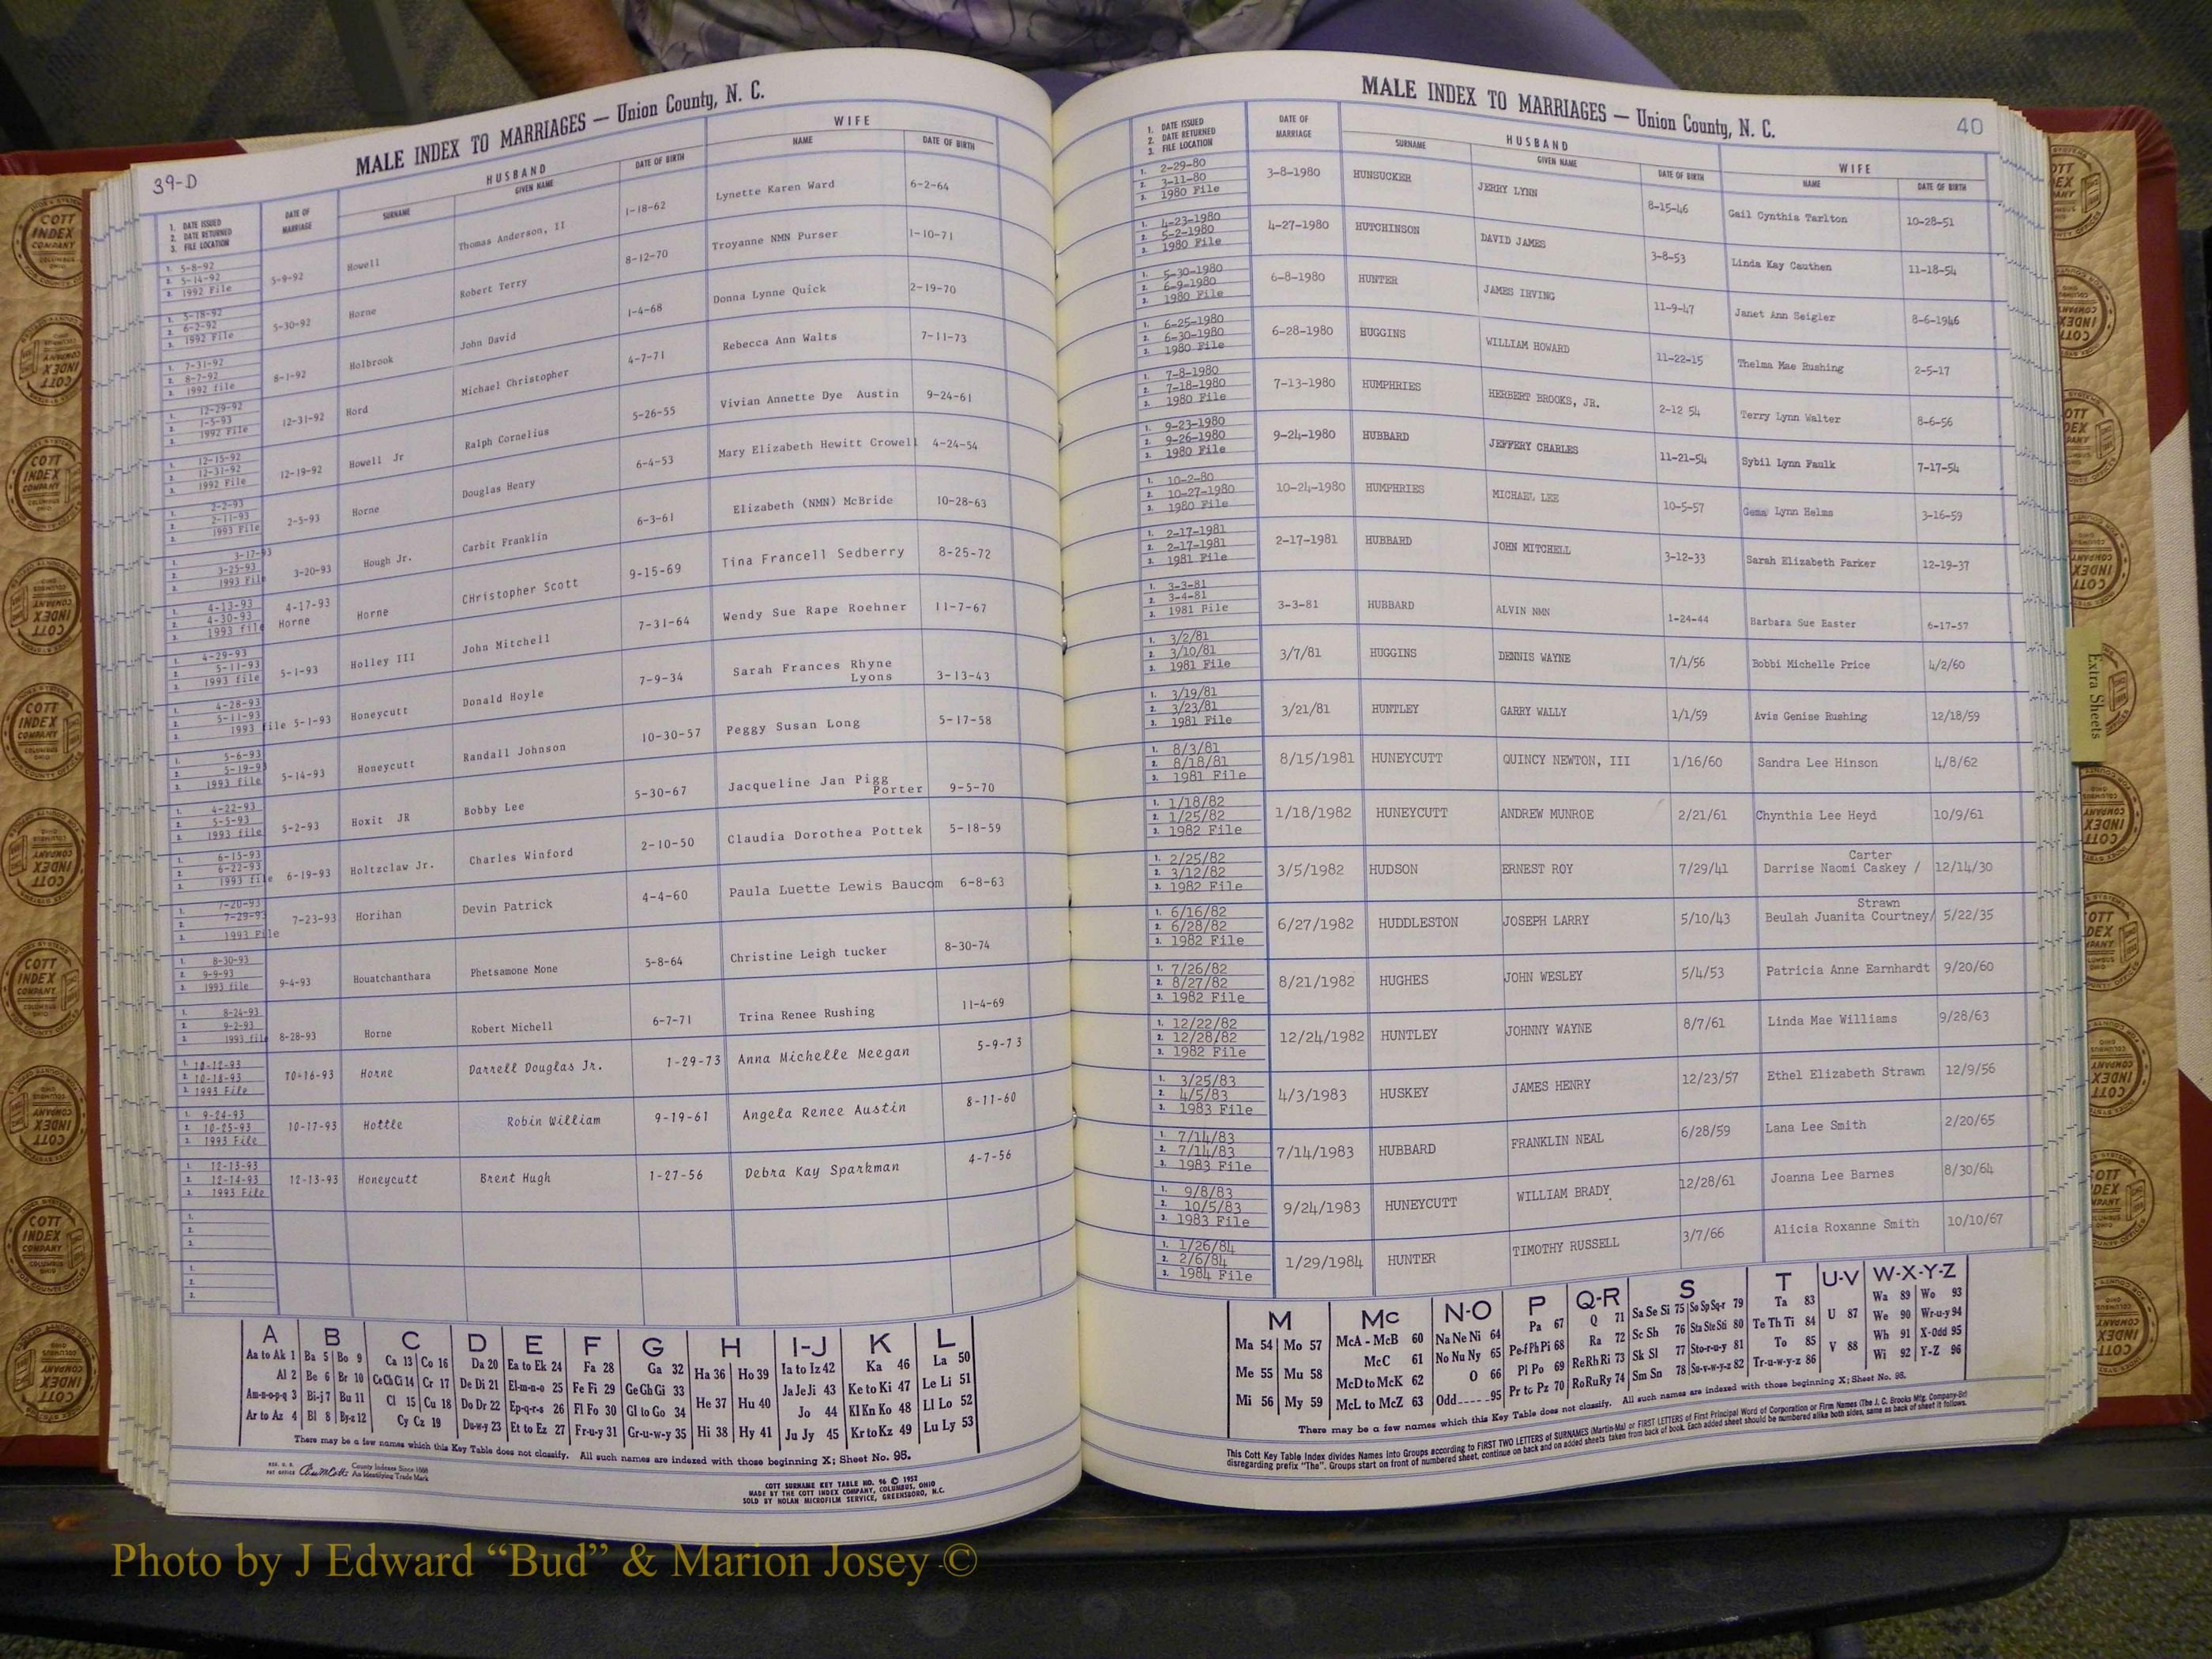 39-D
MALE INDEX TO MARRIAGES — Union County, N. C.
1. DATE ISSUED
2. DATE RETURNED
3. FILE LOCATION
DATE OF MARRIAGE
HUSBAND
SURNAME GIVEN NAME DATE OF BIRTH
WIFE
NAME DATE OF BIRTH
1. 5-8-92
2. 5-14-92
3. 1992 File
5-9-92 Howell Thomas Anderson, II 1-18-62 Lynette Karen Ward 6-2-64
1. 5-18-92
2. 6-2-92
3. 1992 File
5-30-92 Horne Robert Terry 8-12-70 Troyanne NMN Purser 1-10-71
1. 7-31-92
2. 8-7-92
3. 1992 file
8-1-92 Holbrook John David 1-4-68 Donna Lynne Quick 2-19-70
1. 12-29-92
2. 1-5-93
3. 1992 File
12-31-92 Hord Michael Christopher 4-7-71 Rebecca Ann Walts 7-11-73
1. 12-15-92
2. 12-31-92
3. 1992 File
12-19-92 Howell Jr Ralph Cornelius 5-26-55 Vivian Annette Dye Austin 9-24-61
1. 2-2-93
2. 2-11-93
3. 1993 File
2-5-93 Horne Douglas Henry 6-4-53 Mary Elizabeth Hewitt Crowell 4-24-54
1. 3-17-93
2. 3-25-93
3. 1993 File
3-20-93 Hough Jr. Carbit Franklin 6-3-61 Elizabeth (NMN) McBride 10-28-63
1. 4-13-93
2. 4-30-93
3. 1993 file
4-17-93 Horne Horne CHristopher Scott 9-15-69 Tina Francell Sedberry 8-25-72
1. 4-29-93
2. 5-11-93
3. 1993 file
5-1-93 Holley III John Mitchell 7-31-64 Wendy Sue Rape Roehner 11-7-67
1. 4-28-93
2. 5-11-93
3. 1993 file
5-1-93 Honeycutt Donald Hoyle 7-9-34 Sarah Frances Rhyne Lyons 3-13-43
1. 5-6-93
2. 5-19-93
3. 1993 file
5-14-93 Honeycutt Randall Johnson 10-30-57 Peggy Susan Long 5-17-58
1. 4-22-93
2. 5-5-93
3. 1993 file
5-2-93 Hoxit JR Bobby Lee 5-30-67 Jacqueline Jan Pigg Porter 9-5-70
1. 6-15-93
2. 6-22-93
3. 1993 file
6-19-93 Holtzclaw Jr. Charles Winford 2-10-50 Claudia Dorothea Pottek 5-18-59
1. 7-20-93
2. 7-29-93
3. 1993 File
7-23-93 Horihan Devin Patrick 4-4-60 Paula Luette Lewis Baucom 6-8-63
1. 8-30-93
2. 9-9-93
3. 1993 file
9-4-93 Houatchanthara Phetsamone Mone 5-8-64 Christine Leigh tucker 8-30-74
1. 8-24-93
2. 9-2-93
3. 1993 file
8-28-93 Horne Robert Michell 6-7-71 Trina Renee Rushing 11-4-69
1. 10-12-93
2. 10-18-93
3. 1993 File
10-16-93 Horne Darrell Douglas Jr. 1-29-73 Anna Michelle Meegan 5-9-73
1. 9-24-93
2. 10-25-93
3. 1993 File
10-17-93 Hottle Robin William 9-19-61 Angela Renee Austin 8-11-60
1. 12-13-93
2. 12-14-93
3. 1993 File
12-13-93 Honeycutt Brent Hugh 1-27-56 Debra Kay Sparkman 4-7-56
1.
2.
3.
1.
2.
3.
A B C D E F G H I-J K L
Aa to Ak 1 Ba 5 Bo 9 Ca 13 Co 16 Da 20 Ea to Ek 24 Fa 28 Ga 32 Ha 36 Ho 39 Ia to Iz 42 Ka 46 La 50
Al 2 Be 6 Br 10 Ce Ch Ci 14 Cr 17 De Di 21 El-m-n-o 25 Fe Fi 29 Ge Gh Gi 33 He 37 Hu 40 Ja Je Ji 43 Ke to Ki 47 Le Li 51
Am-n-o-p-q 3 Bi-j 7 Bu 11 Cl 15 Cu 18 Do Dr 22 Ep-q-r-s 26 Fl Fo 30 Gl to Go 34 Hi 38 Hy 41 Jo 44 Kl Kn Ko 48 Ll Lo 52
Ar to Az 4 Bl 8 By-z 12 Cy Cz 19 Du-w-y 23 Et to Ez 27 Fr-u-y 31 Gr-u-w-y 35 Ju Jy 45 Kr to Kz 49 Lu Ly 53
There may be a few names which this Key Table does not classify. All such names are indexed with those beginning X; Sheet No. 95.
County Indexes Since 1888
An Identifying Trade Mark
COTT SURNAME KEY TABLE NO. 96 © 1952
MADE BY THE COTT INDEX COMPANY, COLUMBUS, OHIO
SOLD BY NOLAN MICROFILM SERVICE, GREENSBORO, N.C.
MALE INDEX TO MARRIAGES — Union County, N. C.
40
1. DATE ISSUED
2. DATE RETURNED
3. FILE LOCATION
DATE OF MARRIAGE
HUSBAND
SURNAME GIVEN NAME DATE OF BIRTH
WIFE
NAME DATE OF BIRTH
1. 2-29-80
2. 3-11-80
3. 1980 File
3-8-1980 HUNSUCKER JERRY LYNN 8-15-46 Gail Cynthia Tarlton 10-28-51
1. 4-23-1980
2. 5-2-1980
3. 1980 File
4-27-1980 HUTCHINSON DAVID JAMES 3-8-53 Linda Kay Cauthen 11-18-54
1. 5-30-1980
2. 6-9-1980
3. 1980 File
6-8-1980 HUNTER JAMES IRVING 11-9-47 Janet Ann Seigler 8-6-1946
1. 6-25-1980
2. 6-30-1980
3. 1980 File
6-28-1980 HUGGINS WILLIAM HOWARD 11-22-15 Thelma Mae Rushing 2-5-17
1. 7-8-1980
2. 7-18-1980
3. 1980 File
7-13-1980 HUMPHRIES HERBERT BROOKS, JR. 2-12 54 Terry Lynn Walter 8-6-56
1. 9-23-1980
2. 9-26-1980
3. 1980 File
9-24-1980 HUBBARD JEFFERY CHARLES 11-21-54 Sybil Lynn Faulk 7-17-54
1. 10-2-80
2. 10-27-1980
3. 1980 File
10-24-1980 HUMPHRIES MICHAEL LEE 10-5-57 Gema Lynn Helms 3-16-59
1. 2-17-1981
2. 2-17-1981
3. 1981 File
2-17-1981 HUBBARD JOHN MITCHELL 3-12-33 Sarah Elizabeth Parker 12-19-37
1. 3-3-81
2. 3-4-81
3. 1981 File
3-3-81 HUBBARD ALVIN NMN 1-24-44 Barbara Sue Easter 6-17-57
1. 3/2/81
2. 3/10/81
3. 1981 File
3/7/81 HUGGINS DENNIS WAYNE 7/1/56 Bobbi Michelle Price 4/2/60
1. 3/19/81
2. 3/23/81
3. 1981 File
3/21/81 HUNTLEY GARRY WALLY 1/1/59 Avis Genise Rushing 12/18/59
1. 8/3/81
2. 8/18/81
3. 1981 File
8/15/1981 HUNEYCUTT QUINCY NEWTON, III 1/16/60 Sandra Lee Hinson 4/8/62
1. 1/18/82
2. 1/25/82
3. 1982 File
1/18/1982 HUNEYCUTT ANDREW MUNROE 2/21/61 Chynthia Lee Heyd 10/9/61
1. 2/25/82
2. 3/12/82
3. 1982 File
3/5/1982 HUDSON ERNEST ROY 7/29/41 Darrise Naomi Caskey / Carter 12/14/30
1. 6/16/82
2. 6/28/82
3. 1982 File
6/27/1982 HUDDLESTON JOSEPH LARRY 5/10/43 Beulah Juanita Courtney/ Strawn 5/22/35
1. 7/26/82
2. 8/27/82
3. 1982 File
8/21/1982 HUGHES JOHN WESLEY 5/4/53 Patricia Anne Earnhardt 9/20/60
1. 12/22/82
2. 12/28/82
3. 1982 File
12/24/1982 HUNTLEY JOHNNY WAYNE 8/7/61 Linda Mae Williams 9/28/63
1. 3/25/83
2. 4/5/83
3. 1983 File
4/3/1983 HUSKEY JAMES HENRY 12/23/57 Ethel Elizabeth Strawn 12/9/56
1. 7/14/83
2. 7/14/83
3. 1983 File
7/14/1983 HUBBARD FRANKLIN NEAL 6/28/59 Lana Lee Smith 2/20/65
1. 9/8/83
2. 10/5/83
3. 1983 File
9/24/1983 HUNEYCUTT WILLIAM BRADY 12/28/61 Joanna Lee Barnes 8/30/64
1. 1/26/84
2. 2/6/84
3. 1984 File
1/29/1984 HUNTER TIMOTHY RUSSELL 3/7/66 Alicia Roxanne Smith 10/10/67
M Mc N-O P Q-R S T U-V W-X-Y-Z
Ma 54 Mo 57 McA - McB 60 Na Ne Ni 64 Pa 67 Q 71 Sa Se Si 75 So Sp Sq-r 79 Ta 83 U 87 Wa 89 Wo 93
Me 55 Mu 58 McC 61 No Nu Ny 65 Pe-f Ph Pi 68 Ra 72 Sc Sh 76 Sta Ste Sti 80 Te Th Ti 84 V 88 We 90 Wr-u-y 94
Mi 56 My 59 McD to McK 62 O 66 Pl Po 69 Re Rh Ri 73 Sk Sl 77 Sto-r-u-y 81 To 85 Wh 91 X-Odd 95
McL to McZ 63 Odd 95 Pr to Pz 70 Ro Ru Ry 74 Sm Sn 78 Su-v-w-y-z 82 Tr-u-w-y-z 86 Wi 92 Y-Z 96
There may be a few names which this Key Table does not classify. All such names are indexed with those beginning X; Sheet No. 95.
This Cott Key Table Index divides Names into Groups according to FIRST TWO LETTERS of SURNAMES (Martin-Ma) or FIRST LETTERS of First Principal Word of Corporation or Firm Names (The J. C. Brooks Mfg. Company-Br)
disregarding prefix "The". Groups start on front of numbered sheet, continue on back and on added sheets taken from back of book. Each added sheet should be numbered alike both sides, same as back of sheet it follows.
Extra Sheets
COTT INDEX COMPANY
COLUMBUS, OHIO
Photo by J Edward “Bud” & Marion Josey ©